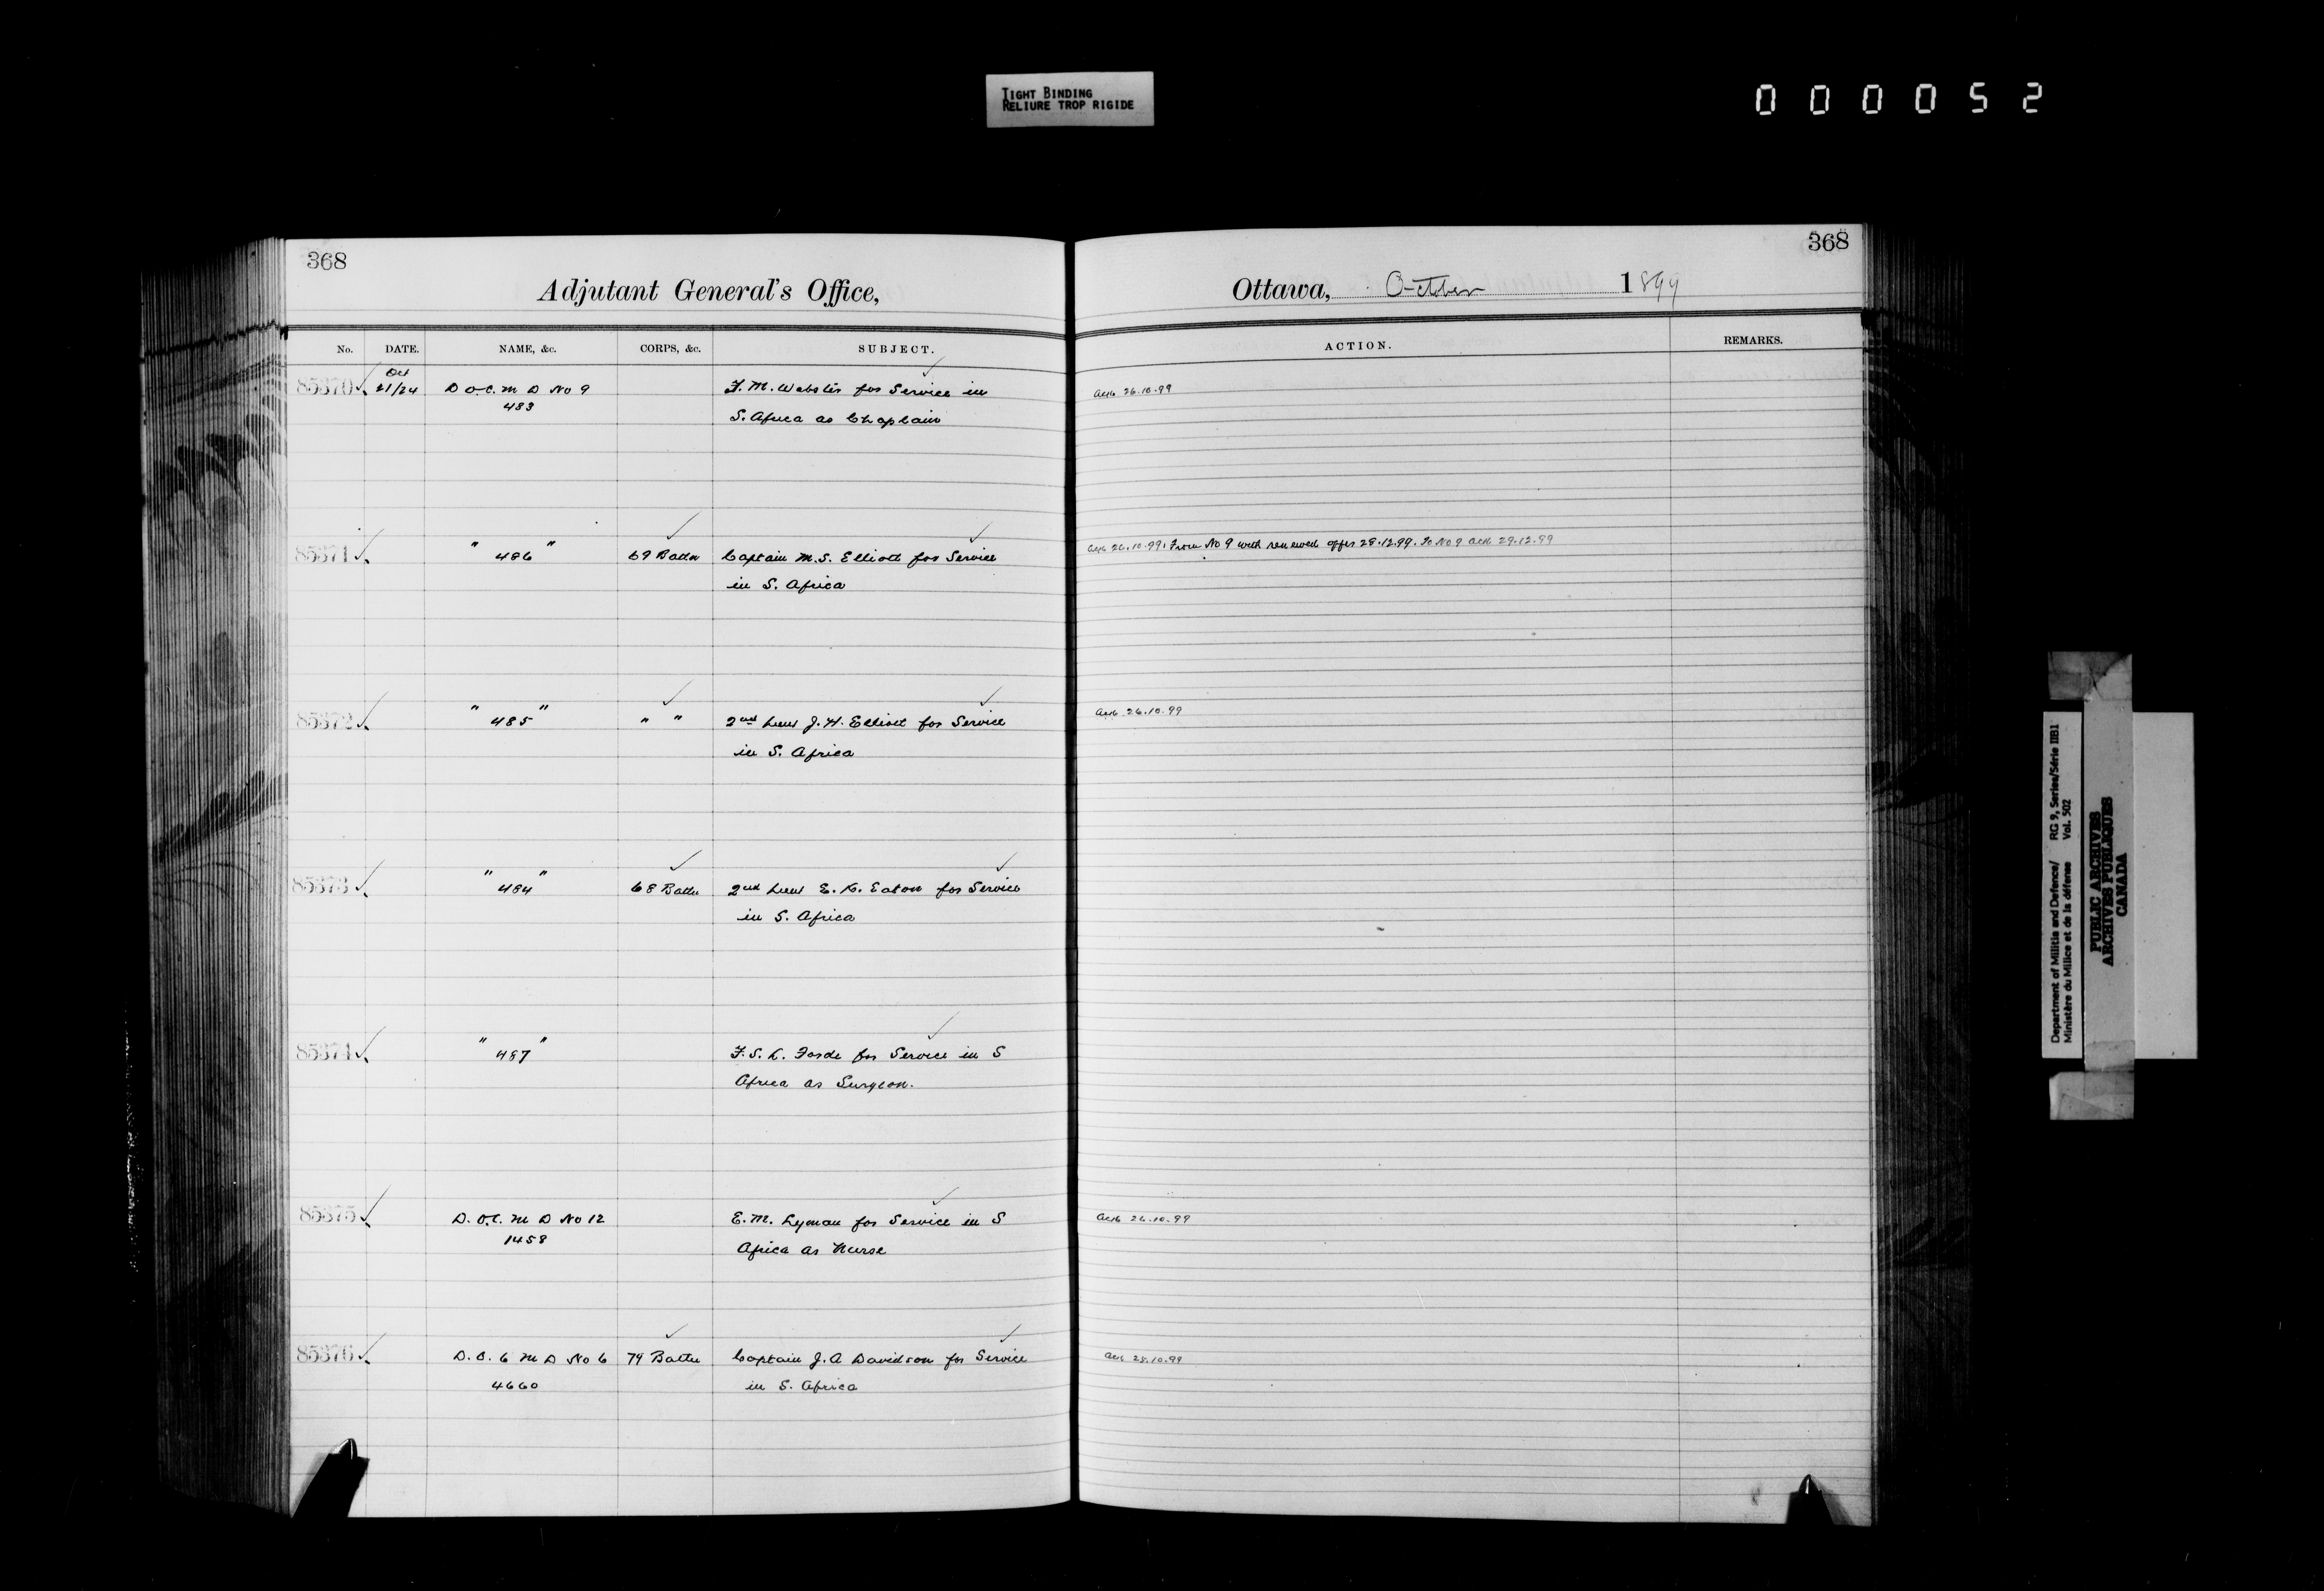 TIGHT BINDING
RELIURE TROP RIGIDE
000052
368
Adjutant General's Office,
No. DATE. NAME, &c. CORPS, &c. SUBJECT.
Oct
85370 21/24 D O.C. M D No 9 F. M. Webster for Service in
483
S. Africa as Chaplain
85371 " 486 " 69 Battn Captain M.S. Elliott for Service
in S. Africa
85372 " 485 " " " 2nd Lieut J. H. Elliott for Service
in S. Africa
85373 " 484 " 68 Battn 2nd Lieut E. K. Eaton for Service
in S. Africa
85374 " 487 " F. S. L. Forde for Service in S
Africa as Surgeon.
85375 D. O.C. M D No 12 E. M. Lyman for Service in S
1458
Africa as Nurse
85376 D. O. C M D No 6 79 Battn Captain J. A Davidson for Service
4660
in S. Africa
368
Ottawa, October 1899
ACTION. REMARKS.
Ack 26.10.99
Ack 26.10.99. From No 9 with renewed offer 28.12.99. To No 9 Ack 29.12.99
Ack 26.10.99
Ack 26.10.99
Ack 28.10.99
Department of Militia and Defence/ RG 9, Series/Série IIB1
Ministère du Milice et de la défense Vol. 502
PUBLIC ARCHIVES
ARCHIVES PUBLIQUES
CANADA